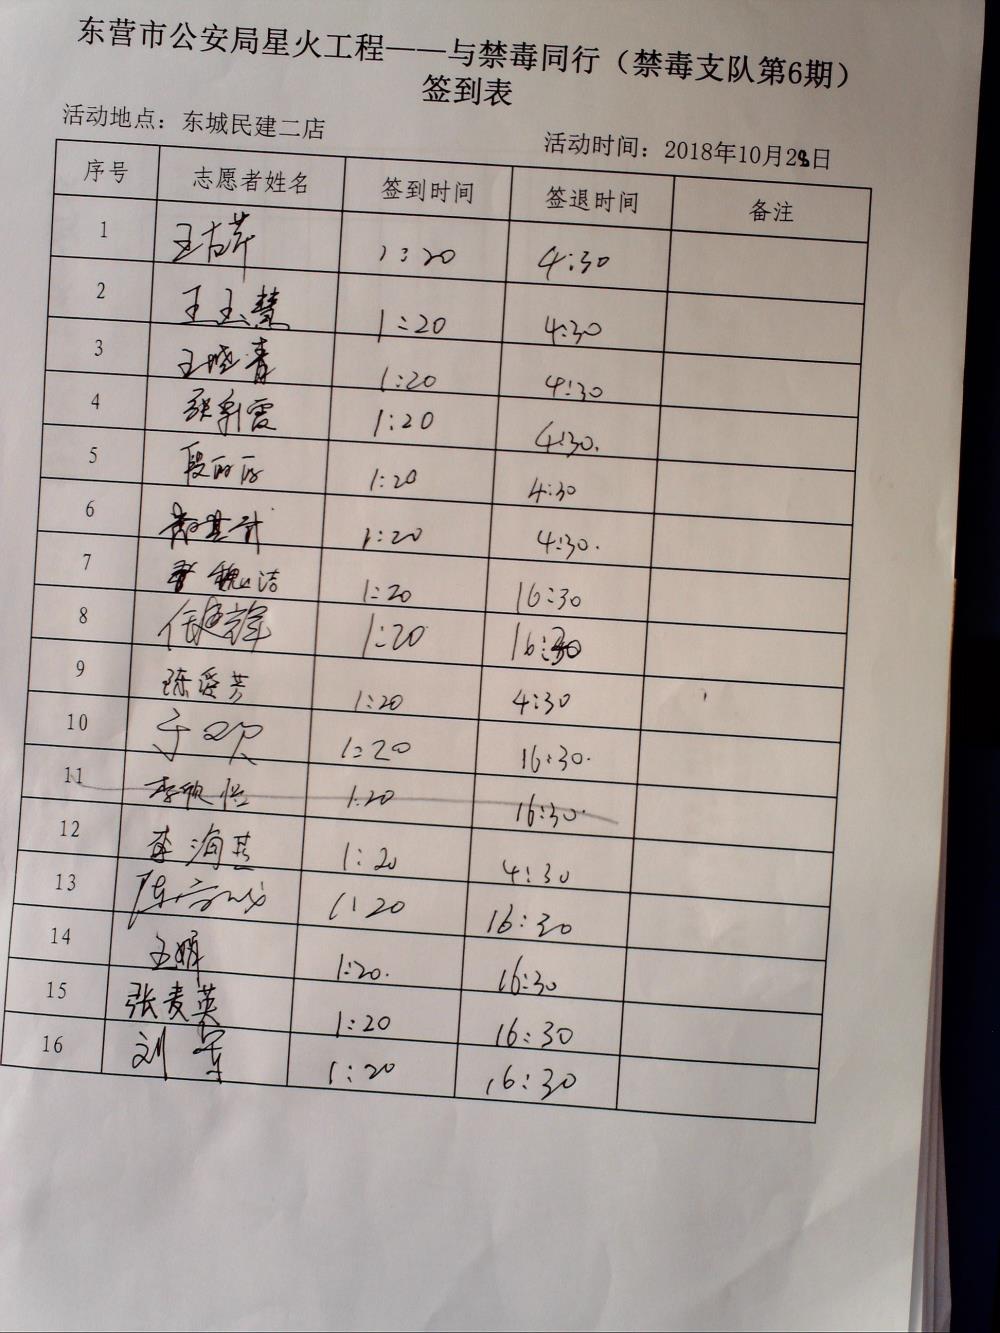 东营市公安局星火工程——与禁毒同行（禁毒支队第6期）
签到表
活动地点：东城民建二店 活动时间：2018年10月28日
序号 志愿者姓名 签到时间 签退时间 备注
1 1:20 4:30
2 王玉慧 1:20 4:30
3 王晓青 1:20 4:30
4 1:20 4:30.
5 段丽丽 1:20 4:30
6 1:20 4:30.
7 魏洁 1:20 16:30
8 任建锋 1:20 16:30
9 陈爱芳 1:20 4:30
10 于欢 1:20 16:30.
11 李欣怡 1:20 16:30.
12 李海燕 1:20 4:30
13 1:20 16:30
14 王娟 1:20. 16:30
15 张麦英 1:20 16:30
16 刘军 1:20 16:30